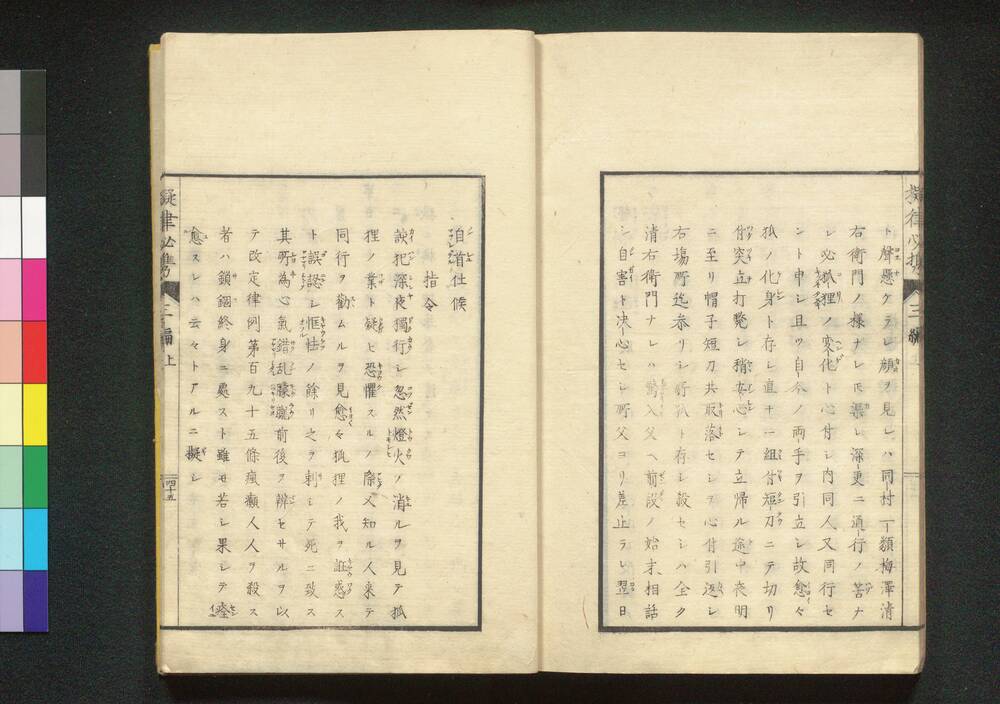 ト聲懸ケラレ顔ヲ見レハ同村一ノ類梅澤清
右衛門ノ様ナレ𪜈深更ニ通行ノ筈ナ
シ必狐狸ノ変化ト心付シ内同人又同行セ
ント申シ且ツ自分ノ両手ヲ引立シ故愈々
狐ノ化身ト存シ直ニ組付短刀ニテ切リ
付突立打斃シ稍安心シテ立帰ル途中夜明
ニ至リ帽子短刀共取落セシヲ心付引返シ
右場所迄参リシ狐ト存シ殺セシハ全ク
清右衛門ナレハ驚入父ヘ前設ノ始末相話
シ自害ト决心セシ所父ヨリ差止ラレ翌日
擬律必携 三編 上
自首仕候
指令
該犯深夜獨行シ忽然燈火ノ消ルヲ見テ狐
狸ノ業ト疑ヒ恐懼スルノ際又知ル人来テ
同行ヲ勸ムルヲ見愈々狐狸ノ我ヲ誑惑ス
ト誤認シ恇怯ノ餘リ之ヲ刺シテ死ニ致ス
其所為心氣錯乱朦朧前後ヲ辨セサルヲ以
テ改定律例第百九十五條瘋癲人人ヲ殺ス
者ハ鎖錮終身ニ處スト雖モ若シ果シテ痊
愈スレハ云々トアルニ擬シ
擬律必携 三編 上 四十五